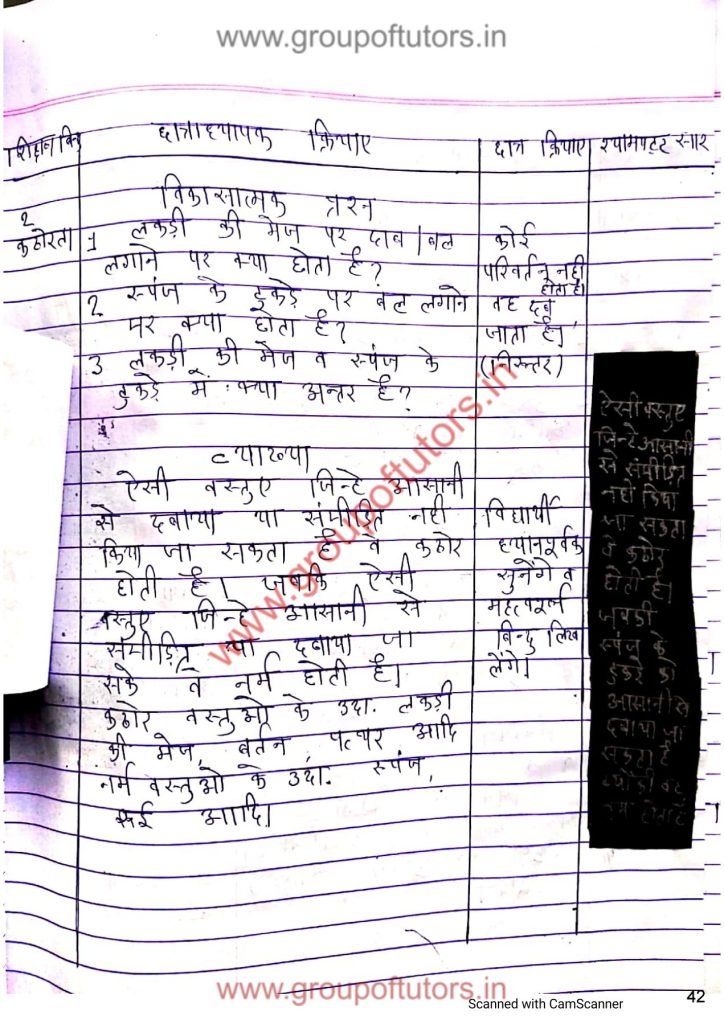 www.groupoftutors.in
शिक्षण बिन्दु
छात्राध्यापक क्रियाए
छात्र क्रियाए
श्यामपट्ट सार
विकासात्मक प्रश्न
2
कठोरता
1 लकड़ी की मेज पर दाब/बल
लगाने पर क्या होता है?
2 स्पंज के टुकड़े पर बल लगाने
पर क्या होता है?
3 लकड़ी की मेज व स्पंज के
टुकड़े में क्या अन्तर है?
कोई
परिवर्तन नही
होता है।
वह दब
जाता है।
(निरुत्तर)
व्याख्या
ऐसी वस्तुए जिन्हे आसानी
से दबाया या संमीड़ित नही
किया जा सकता है वे कठोर
होती है। जबकि ऐसी
वस्तुए जिन्हे आसानी से
संमीड़ित या दबाया जा
सके वे नर्म होती है।
कठोर वस्तुओ के उदा. लकड़ी
की मेज, बर्तन, पत्थर आदि
नर्म वस्तुओ के उदा. स्पंज,
रूई आदि।
विद्यार्थी
ध्यानपूर्वक
सुनेंगे व
महत्वपूर्ण
बिन्दु लिख
लेंगे।
ऐसी वस्तुए
जिन्हे आसानी
से संमीड़ित
नही किया
जा सकता
वे कठोर
होती है।
जबकी
स्पंज के
टुकडे को
आसानी से
दबाया जा
सकता है
नर्म होता है
www.groupoftutors.in
www.groupoftutors.in
Scanned with CamScanner
42